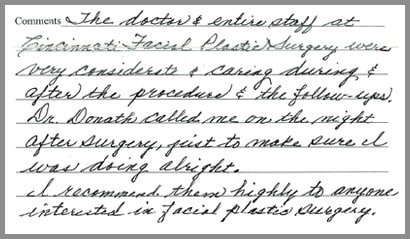 Comments The doctor & entire staff at
Cincinnati Facial Plastic Surgery were
very considerate & caring during &
after the procedure & the follow-ups.
Dr. Donath called me on the night
after surgery, just to make sure I
was doing alright.
I recommend them highly to anyone
interested in facial plastic surgery.